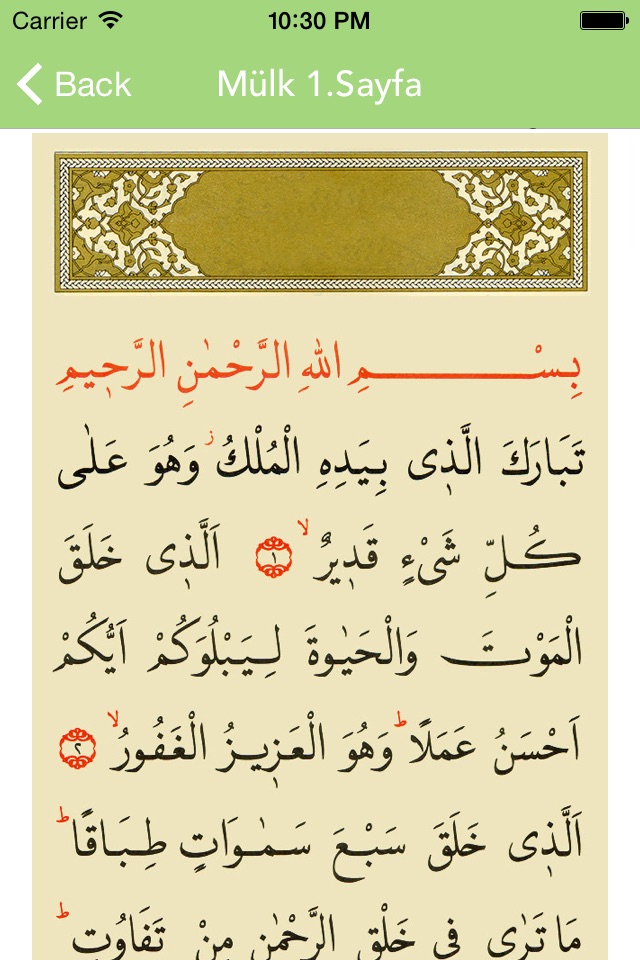 Carrier 10:30 PM
Back Mülk 1.Sayfa
بِسْمِ اللّٰهِ الرَّحْمٰنِ الرَّح۪يمِ
تَبَارَكَ الَّذ۪ى بِيَدِهِ الْمُلْكُ ز وَهُوَ عَلٰى
كُلِّ شَىْءٍ قَد۪يرٌ لا ١ اَلَّذ۪ى خَلَقَ
الْمَوْتَ وَالْحَيٰوةَ لِيَبْلُوَكُمْ اَيُّكُمْ
اَحْسَنُ عَمَلًا ط وَهُوَ الْعَز۪يزُ الْغَفُورُ لا ٢
اَلَّذ۪ى خَلَقَ سَبْعَ سَمٰوَاتٍ طِبَاقًا ط
مَا تَرٰى ف۪ى خَلْقِ الرَّحْمٰنِ مِنْ تَفَاوُتٍ ط